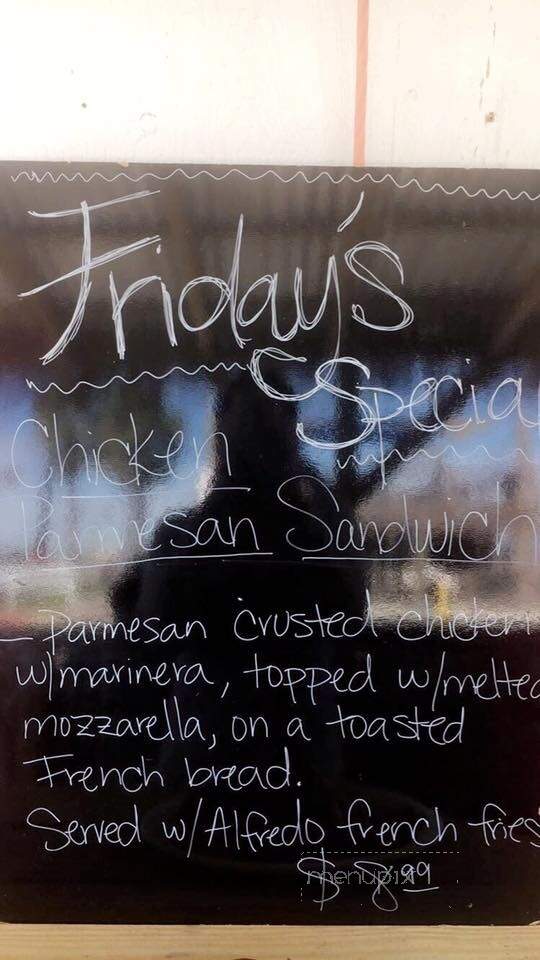 Friday's
Specia
Chicken
Parmesan Sandwich
- Parmesan crusted chicken
w/marinera, topped w/melted
mozzarella, on a toasted
French bread.
Served w/Alfredo french fries
$8.99
menupix